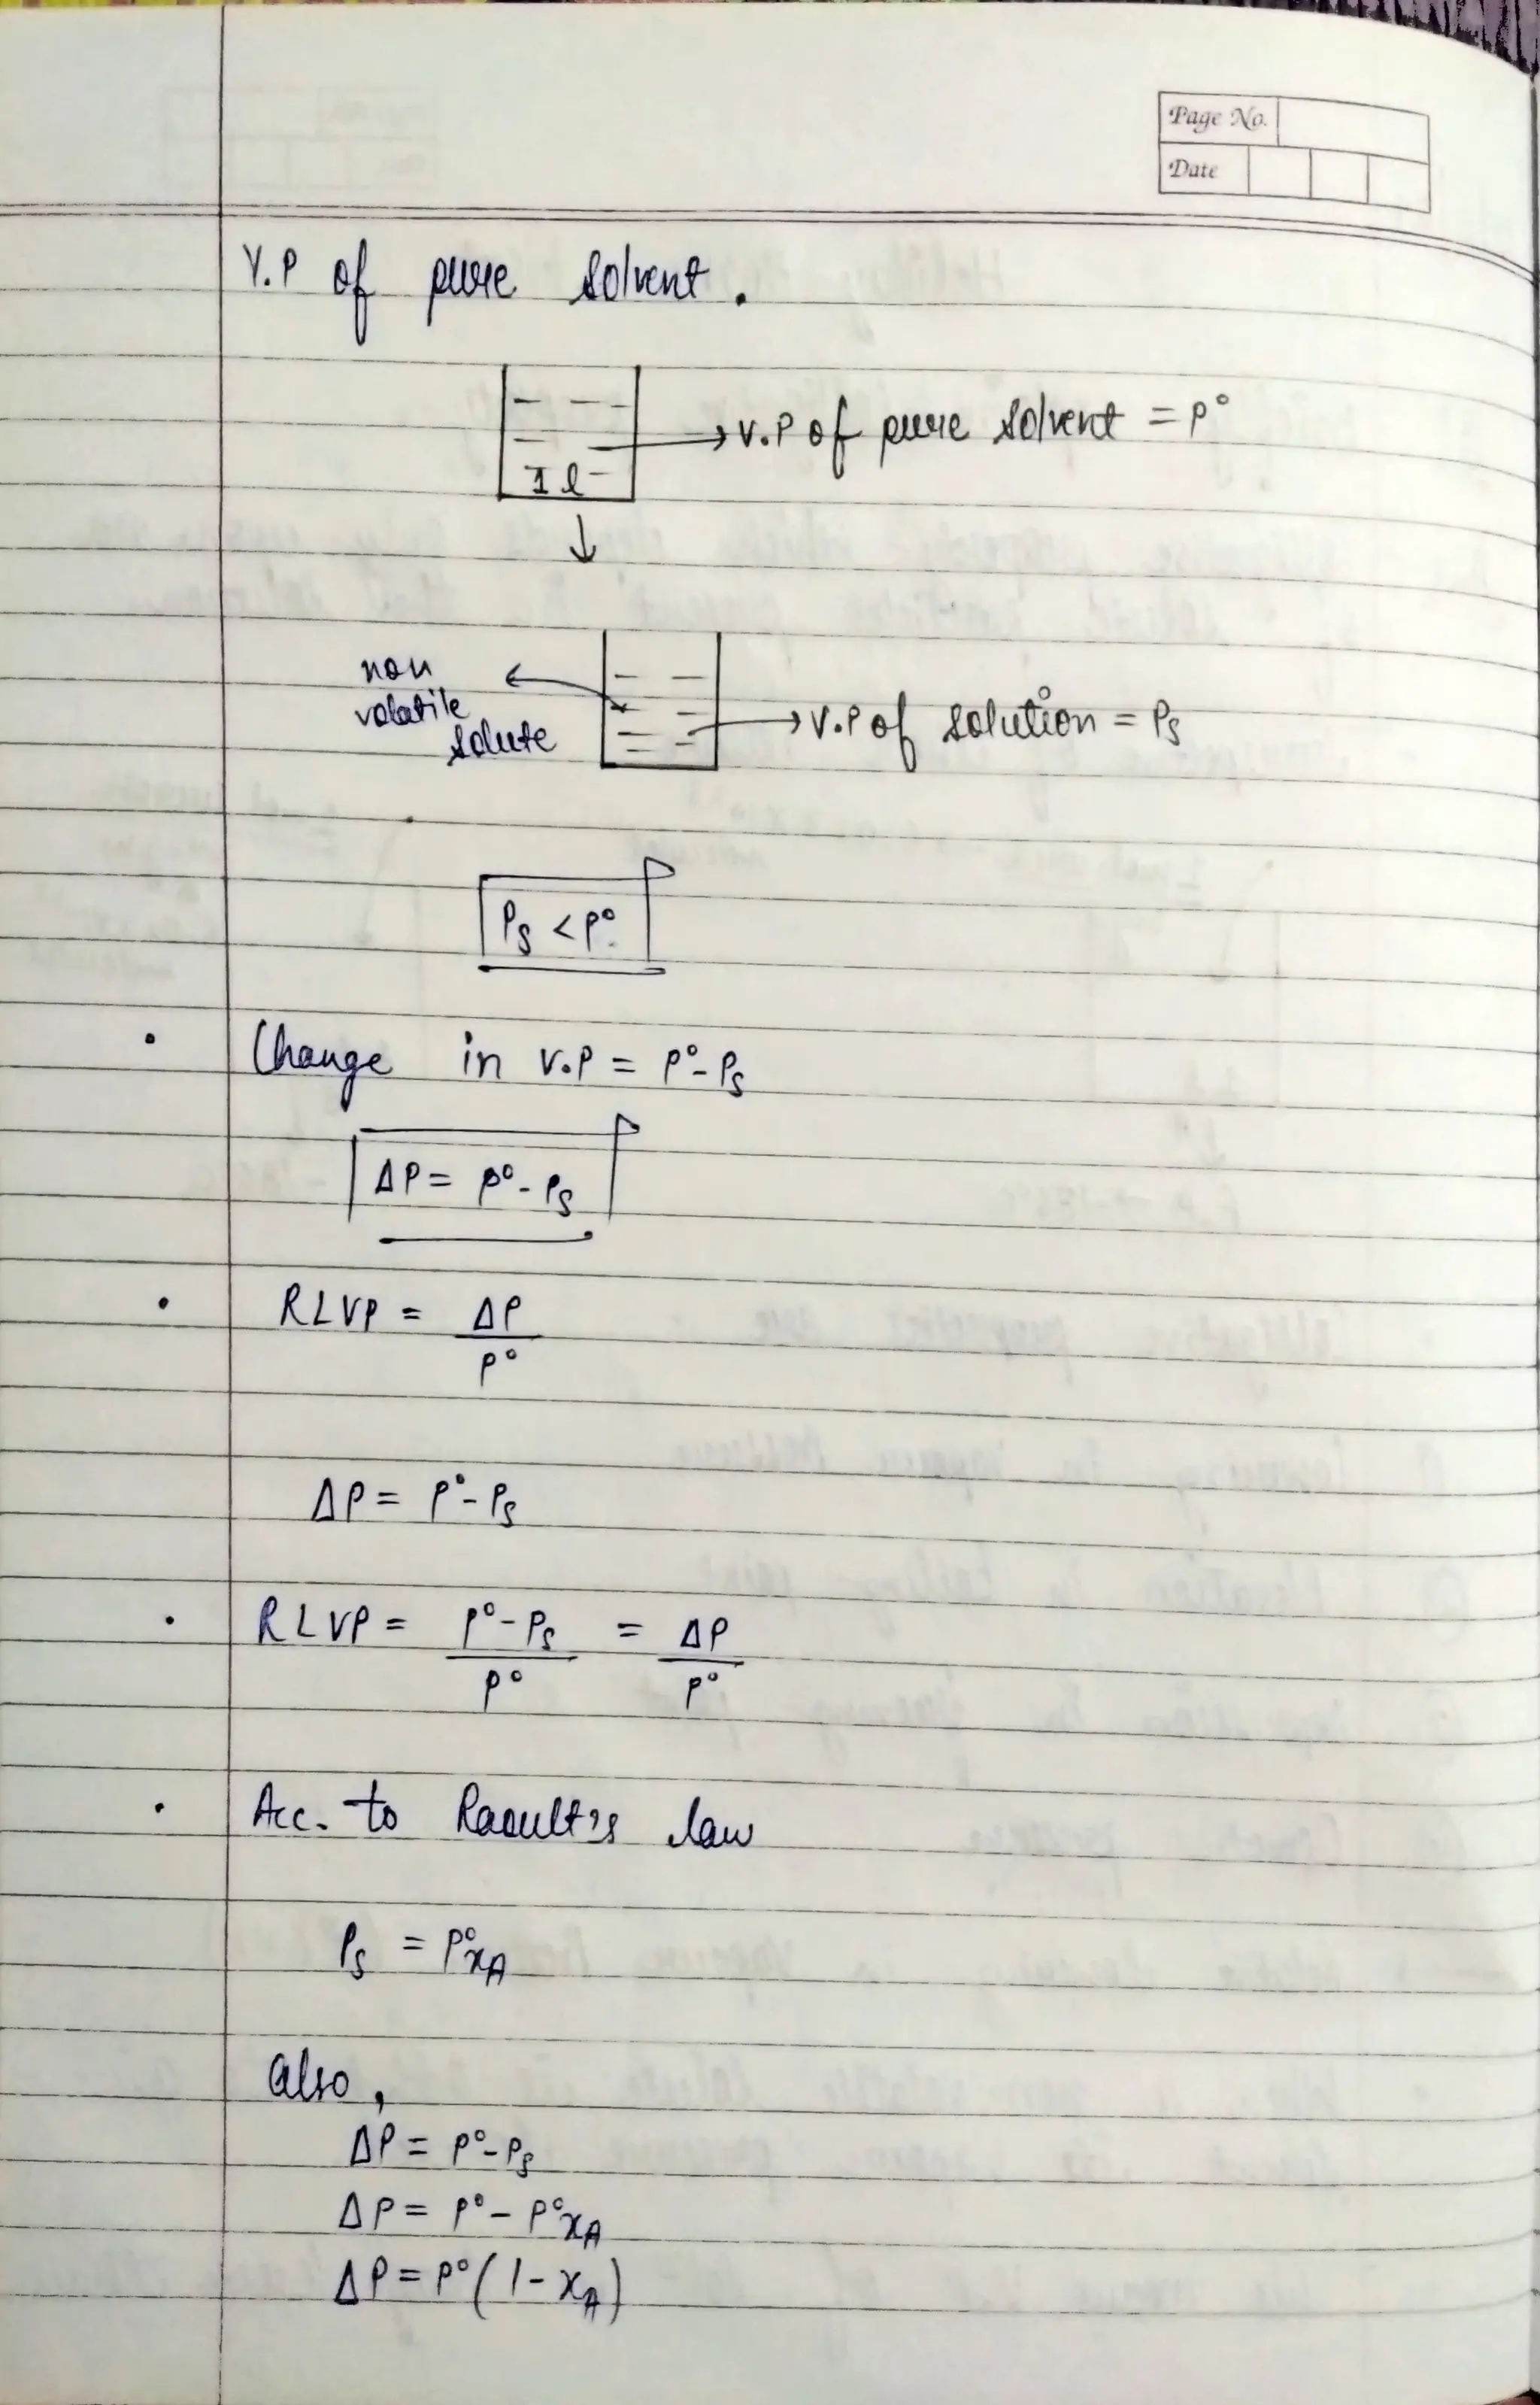 Page No.
Date
V.P of pure solvent.
1 l
→ V.P of pure solvent = P°
↓
non
volatile
solute
→ V.P of solution = Ps
Ps < P°
• Change in V.P = P° - Ps
ΔP = P° - Ps
• RLVP = ΔP
P°
ΔP = P° - Ps
• RLVP = P° - Ps = ΔP
P° P°
• Acc. to Raoult's law
Ps = P°xA
Also,
ΔP = P° - Ps
ΔP = P° - P°xA
ΔP = P°(1 - xA)